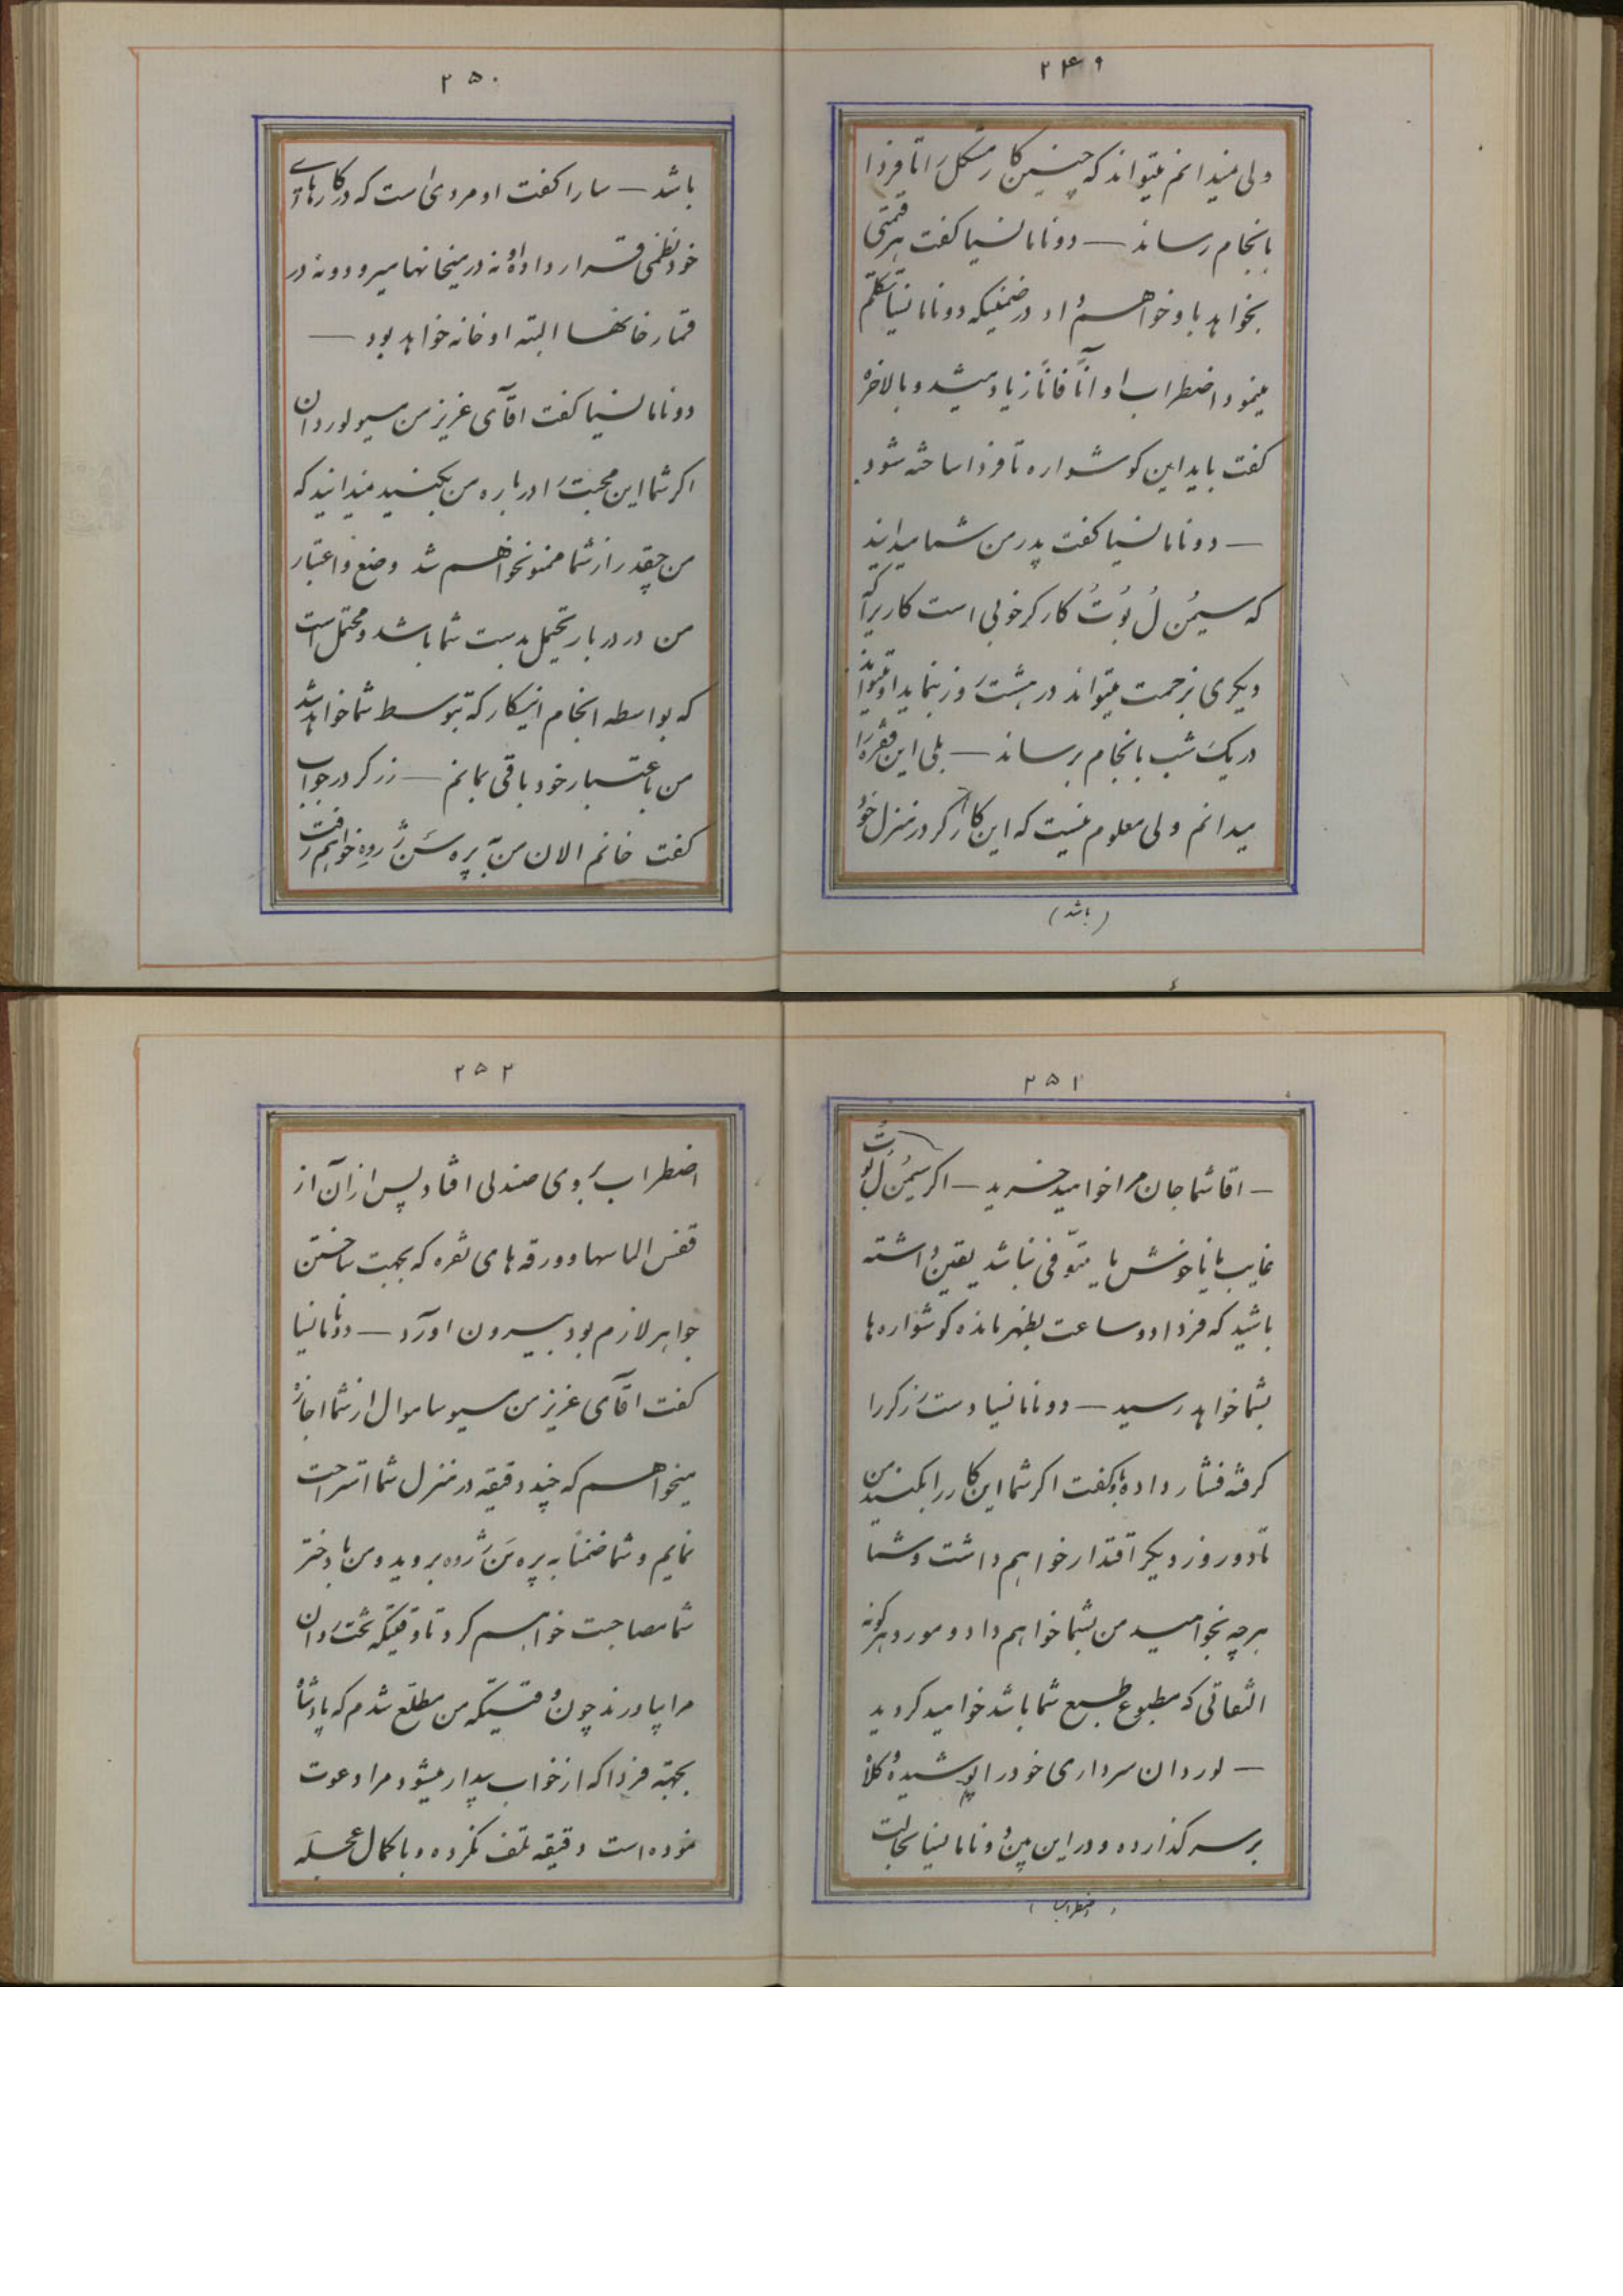 ۲۴۹
ولی نمیدانم میتواند که چنین کار مشکل را تا فردا
بانجام رساند — دونامانسیا گفت هر قیمتی
بخواهد باو خواهم داد در ضمنیکه دونامانسیا تکلم
مینمود اضطراب او آناً فاناً زیاد میشد و بالاخره
گفت باید این گوشواره تا فردا ساخته شود
— دونامانسیا گفت پدر من شما میدانید
که سیمُن لُ بُوتُ کارگر خوبی است کاریرا که
دیگری بزحمت میتواند در هشت روز بنماید او میتواند
در یک شب بانجام برساند — بلی این فقره را
میدانم ولی معلوم نیست که این کارگر در منزل خود
(باشد)
۲۵۰
باشد — سارا گفت او مردی است که در کارهای
خود نظمی قرار داده او نه در میخانها میرود و نه در
قمارخانها البته او خانه خواهد بود —
دونامانسیا گفت اقآی عزیز من مسیو لوردان
اگر شما این محبت را درباره من بکنید میدانید که
من چقدر از شما ممنون خواهم شد وضع و اعتبار
من در دربار تحیمل بدست شما باشد و محتمل است
که بواسطه انجام اینکار که بتوسط شما خواهد شد
من باعتبار خود باقی بمانم — زرگر در جواب
گفت خانم الان من به پره سَن ژروه خواهم رفت
۲۵۱
— اقا شما جان مرا خواهید خرید — اگر سیمُن لُ بُوتُ
غایب یا ناخوش یا متوفی نباشد یقین داشته
باشید که فردا دو ساعت بظهر مانده گوشواره ها
بشما خواهد رسید — دونامانسیا دست زرگر را
گرفته فشار داده باو گفت اگر شما این کار را بکنید من
تا دو روز دیگر اقتدار خواهم داشت و شما
هرچه بخواهید من بشما خواهم داد و مورد هرگونه
التفاتی که مطبوع طبع شما باشد خواهید گردید
— لوردان سرداری خود را پوشیده کلاه
بر سر گذارده و در این بین دونامانسیا بحالت
(اضطراب)
۲۵۲
اضطراب بروی صندلی افتاد پس از آن از
قفس الماسها و ورقه های نقره که بجهت ساختن
جواهر لازم بود بیرون اورد — دونامانسیا
گفت اقآی عزیز من مسیو ساموال از شما اجازه
میخواهم که چند دقیقه در منزل شما استراحت
نمایم و شما ضمناً به پره سَن ژروه بروید و من با دختر
شما مصاحبت خواهم کرد تا وقتیکه تخت روان
مرا بیاورند چون وقتیکه من مطلع شدم که پادشاه
بجهته فردا که از خواب بیدار میشود مرا دعوت
نموده است دقیقه تلف نکرده و با کمال عجله